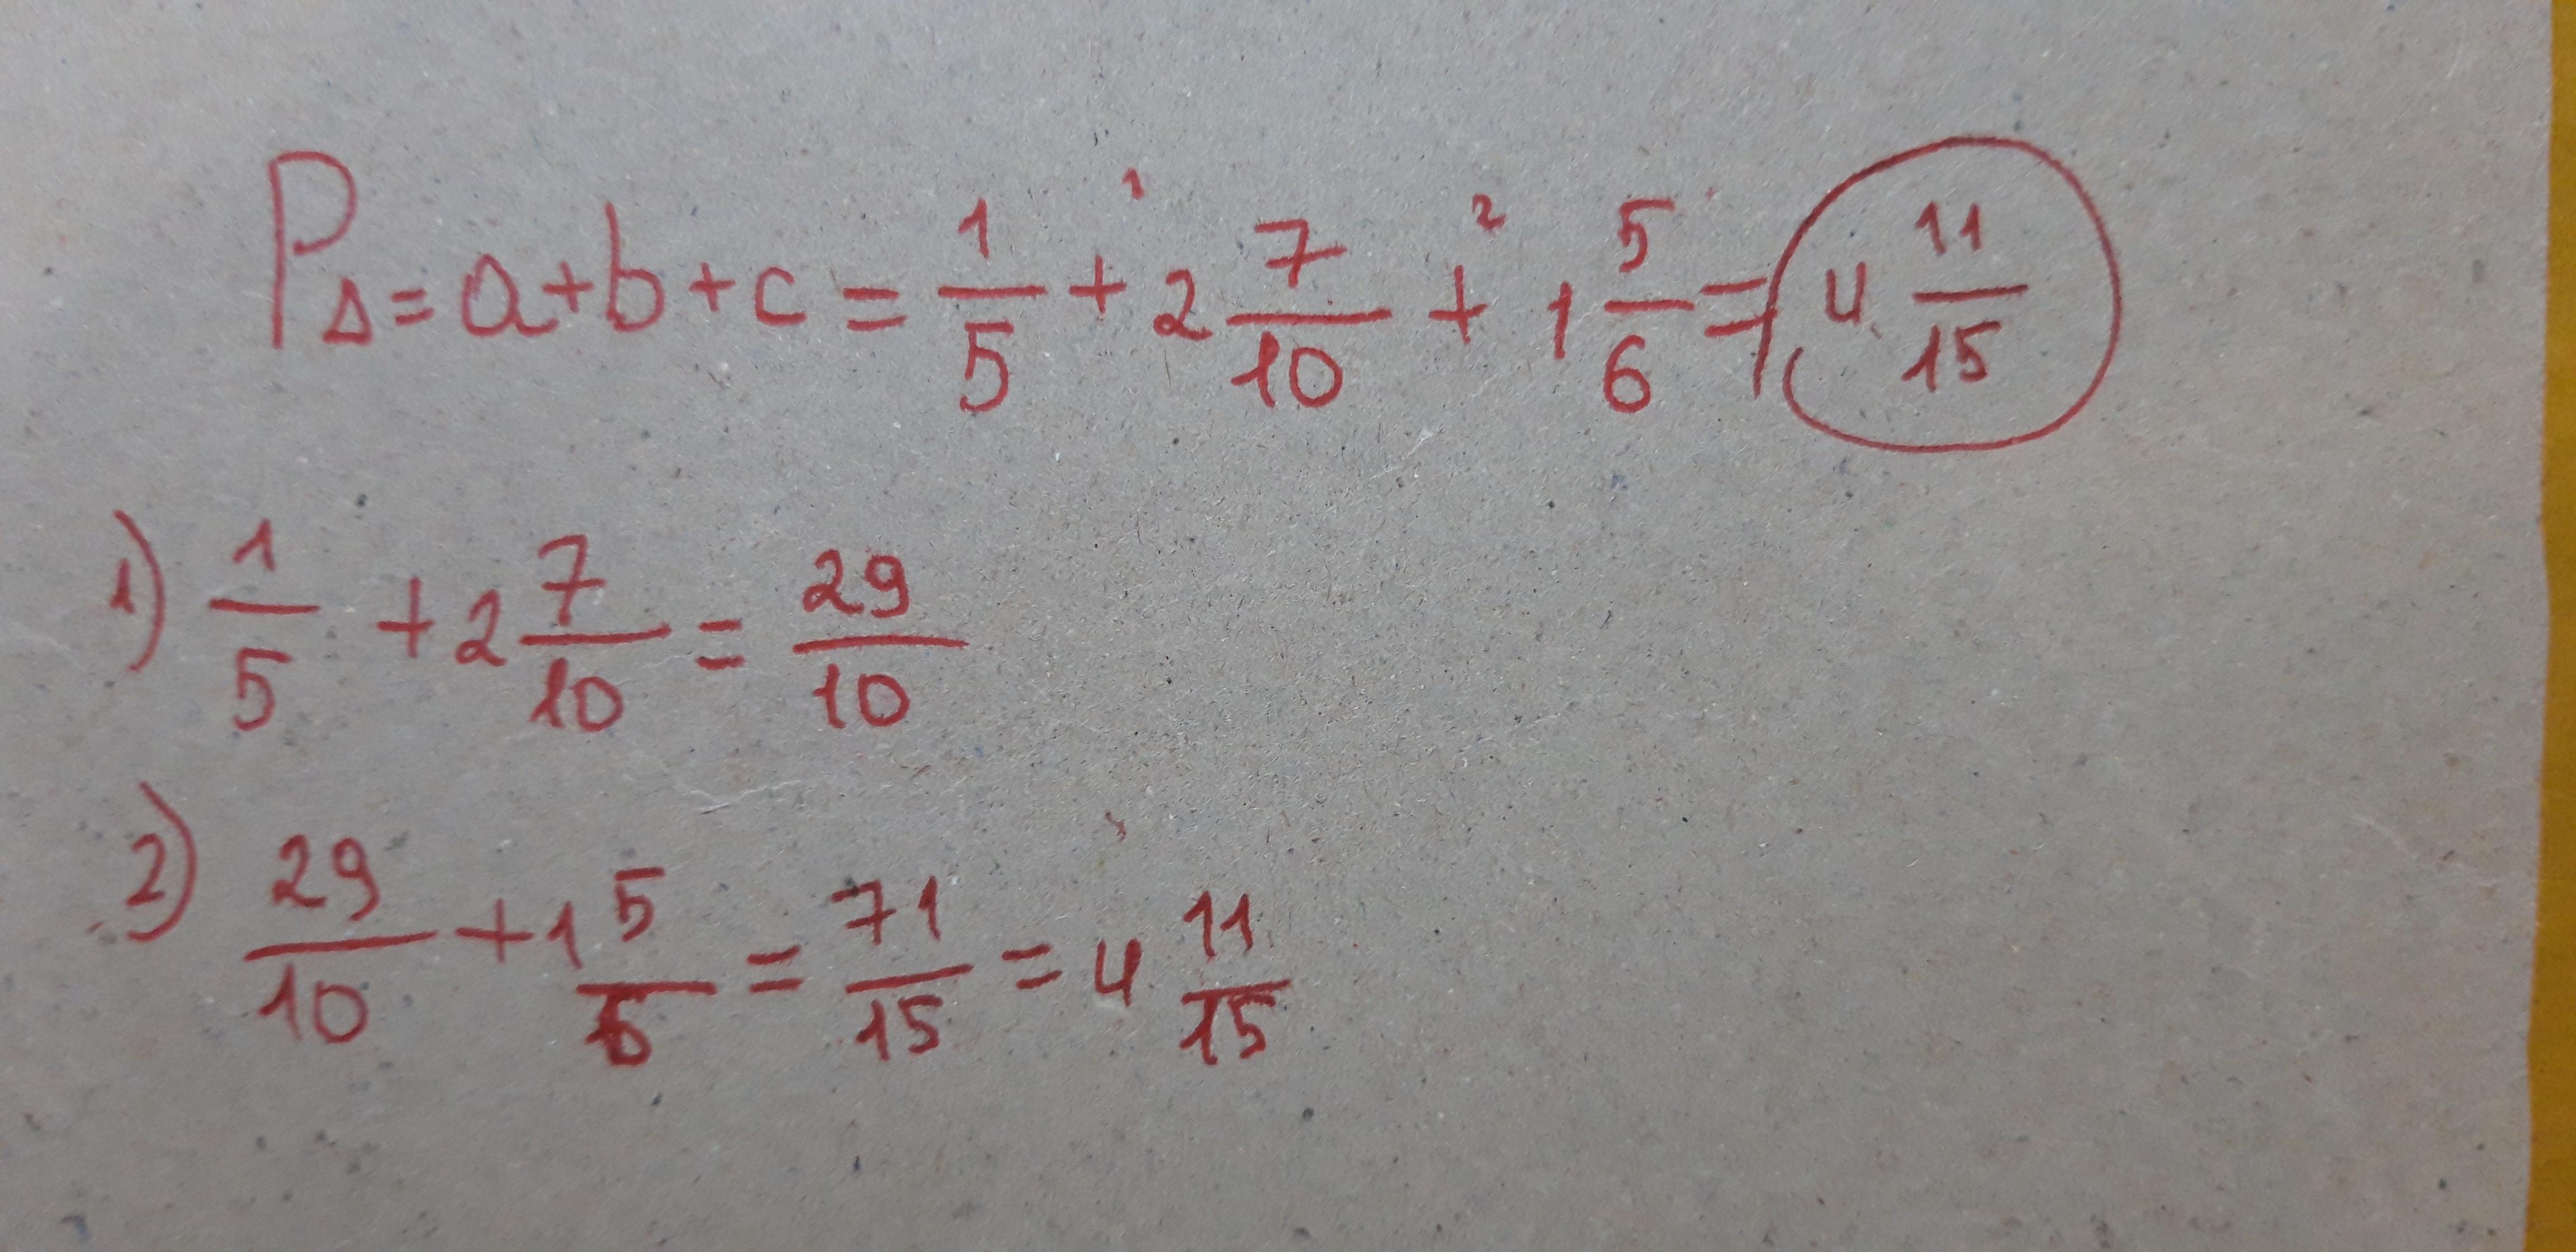 P△ = a + b + c = 1/5 +¹ 2 7/10 +² 1 5/6 = 4 11/15
1) 1/5 + 2 7/10 = 29/10
2) 29/10 + 1 5/6 = 71/15 = 4 11/15